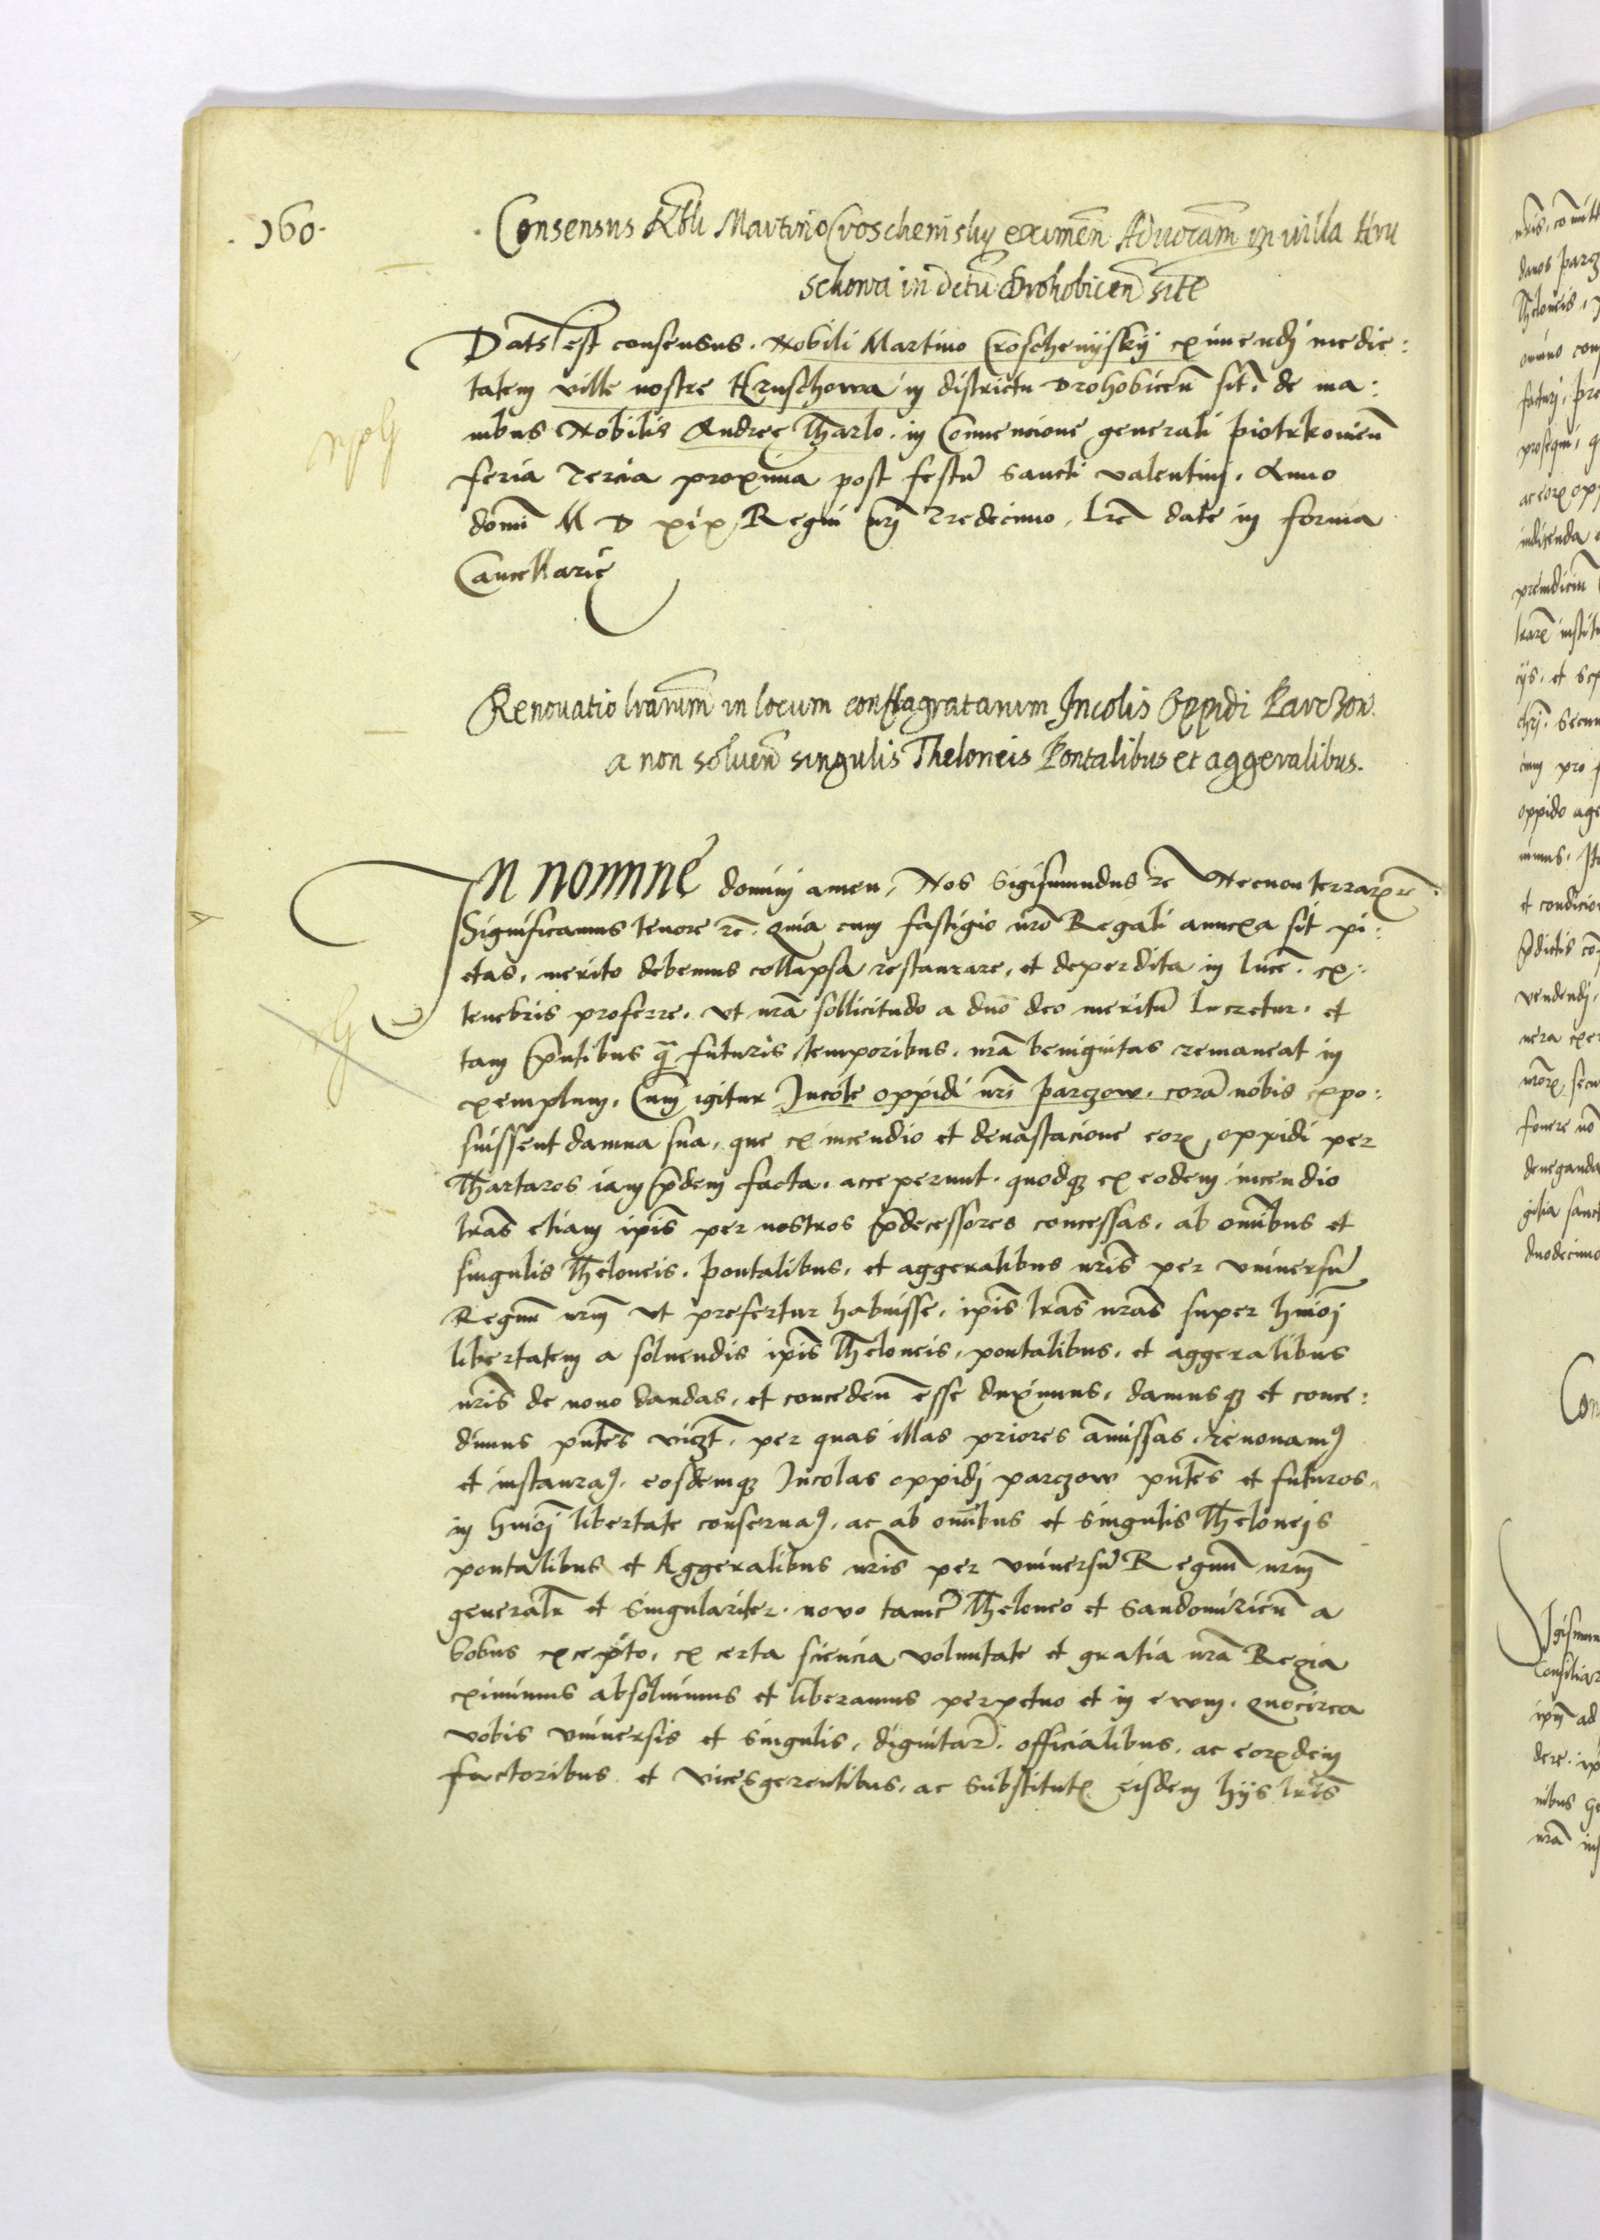 .160.
Consensus Nobili Martino Croschenisky eximen Advocam in villa Hru
schowa in dctu Drohobicen site
Dats est consensus. Nobili Martino Croschenÿskÿ eximendj medie:
tatem ville nostre Hruschowa in districtu Drohobiceñ sit. de ma:
nibus Nobilis Andree Tharlo. in Convencione generali Piotrkovieñ
feria Tercia proxima post festũ sancti Valentinj. Anno
domĩ M D xix Regni nr̃i Tredecimo, lr̃e date in forma
Cancellarie
Renovatio lrarum in locum conflagratarum Incolis Oppidi Parczow.
a non solveñ singulis Theloneis Pontalibus et aggeralibus.
In nomine dominj amen, Nos Sigismundus rc̃ Necnon terrarꝝ rc̃.
Significamus tenore rc̃. Quia cum fastigio nr̃o Regali annexa sit pi:
etas, merito debemus collapsa restaurare, et deperdita in lucẽ. ex
tenebris proferre. Ut nr̃a sollicitudo a dnõ deo meritũ lucretur. et
tam pñtibus q̃ futuris temporibus. nr̃a benignitas remaneat in
exemplum. Cum igitur Incole oppidi nr̃i Parczow. corã nobis expo:
suissent damna sua, que ex incendio et devastacione eorꝝ oppidi per
Thartaros iam pr̃dem facta. acceperunt. quodqꝫ ex eodem incendio
lr̃as etiam ip̃is per nostros p̃decessores concessas, ab omĩbus et
singulis Theloneis. pontalibus, et aggeralibus nr̃is per universũ
Regnũ nr̃m ut prefertur habuisse, ip̃is lr̃as nr̃as super hmõj
libertatem a solvendis ip̃is Theloneis, pontalibus, et aggeralibus
nr̃is de novo dandas, et concedeñ esse duximus, damusqꝫ et conce:
dimus pñtes viczt̃. per quas illas priores amissas. renovamꝯ
et instauraꝯ. eosdemqꝫ Incolas oppidj parczow pñtes et futuros.
in hmõj libertate conservaꝯ. ac ab omĩbus et singulis Thelonejs
pontalibus et Aggeralibus nr̃is per universũ Regnũ nr̃m
generalr̃ et singulariter. novo tamẽ Theloneo et Sandomirieñ a
bobus excepto, ex certa sciencia voluntate et gratia nr̃a Regia
eximimus absolvimus et liberamus perpetuo et in evum. Quocirca
vobis universis et singulis, dignitar̃. officialibus. ac eorꝝdem
factoribus et vicesgerentibus, ac substitutꝭ eisdem hÿs lr̃is